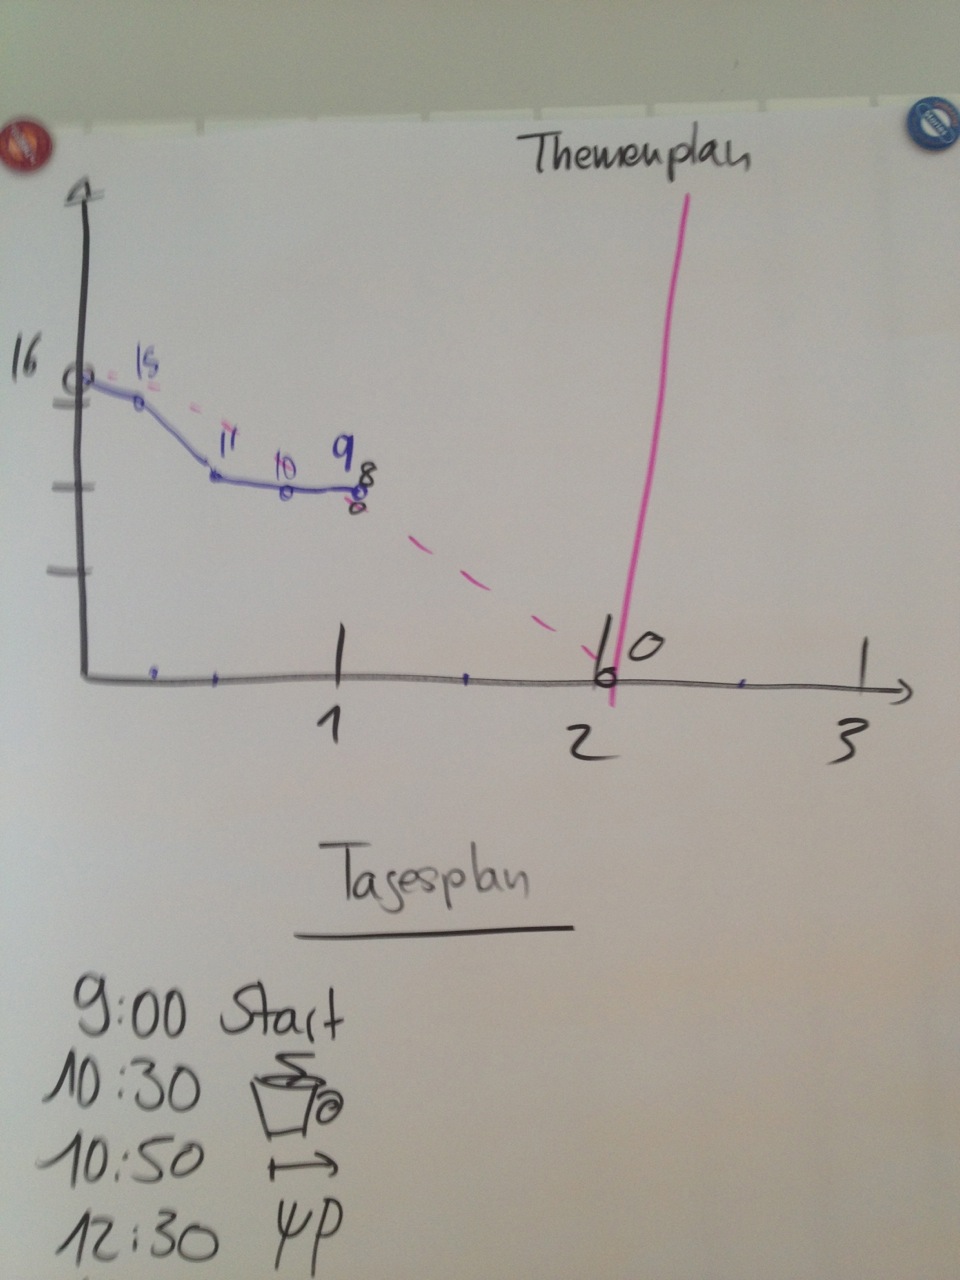 Themenplan
16
15
11
10
9
8
0
1
2
3
Tagesplan
9:00 Start
10:30
10:50
12:30